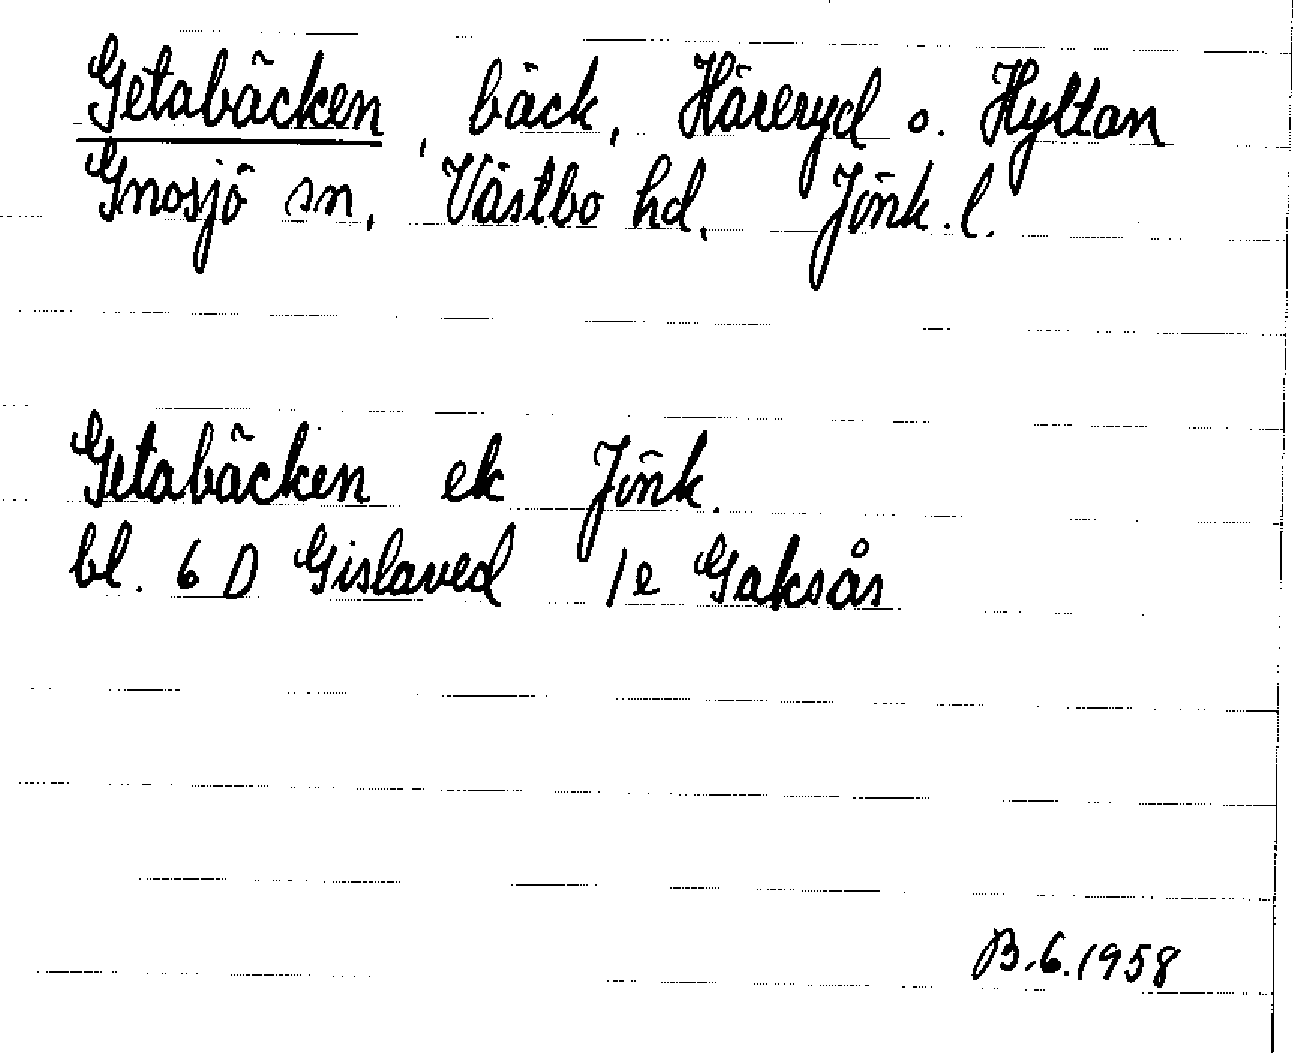 Getabäcken, bäck, Häreryd o. Hyltan
Gnosjö sn, Västbo hd, Jönk. l.
Getabäcken ek Jönk.
bl. 6 D Gislaved 1e Gaksås
B.6.1958